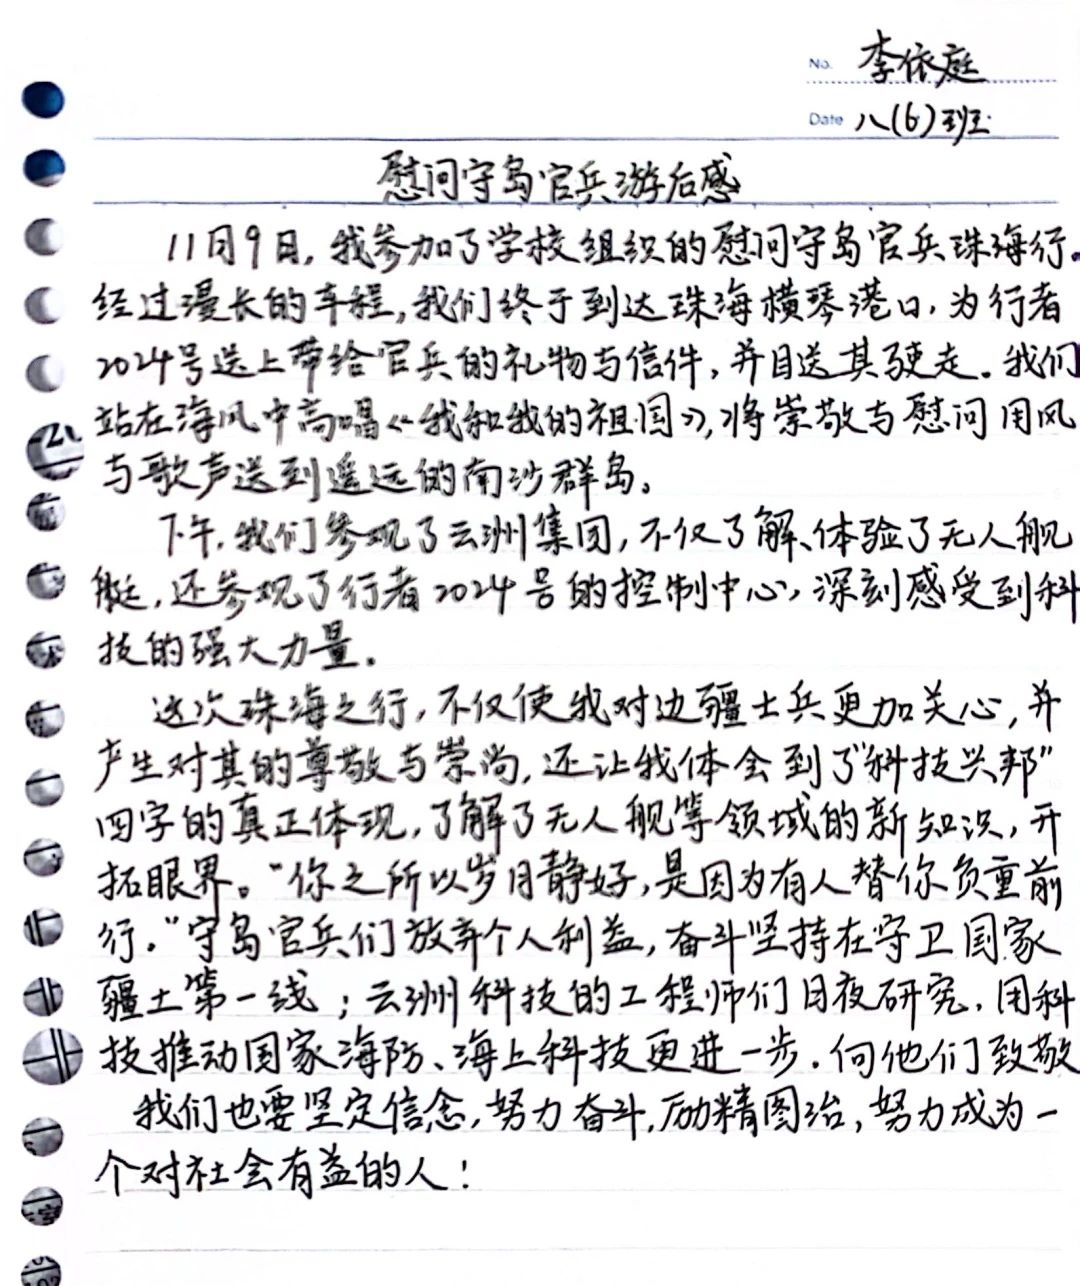 No. 李依庭
Date 八(6)班
慰问守岛官兵游后感
11月9日,我参加了学校组织的慰问守岛官兵珠海行。
经过漫长的车程,我们终于到达珠海横琴港口,为行者
2024号送上带给官兵的礼物与信件,并目送其驶走。我们
站在海风中高唱《我和我的祖国》,将崇敬与慰问用风
与歌声送到遥远的南沙群岛。
下午,我们参观了云洲集团,不仅了解、体验了无人舰
艇,还参观了行者2024号的控制中心,深刻感受到科
技的强大力量。
这次珠海之行,不仅使我对边疆士兵更加关心,并
产生对其的尊敬与崇尚,还让我体会到了"科技兴邦"
四字的真正体现,了解了无人舰等领域的新知识,开
拓眼界。"你之所以岁月静好,是因为有人替你负重前
行。"守岛官兵们放弃个人利益,奋斗坚持在守卫国家
疆土第一线;云洲科技的工程师们日夜研究,用科
技推动国家海防、海上科技更进一步.向他们致敬
我们也要坚定信念,努力奋斗,励精图治,努力成为一
个对社会有益的人!